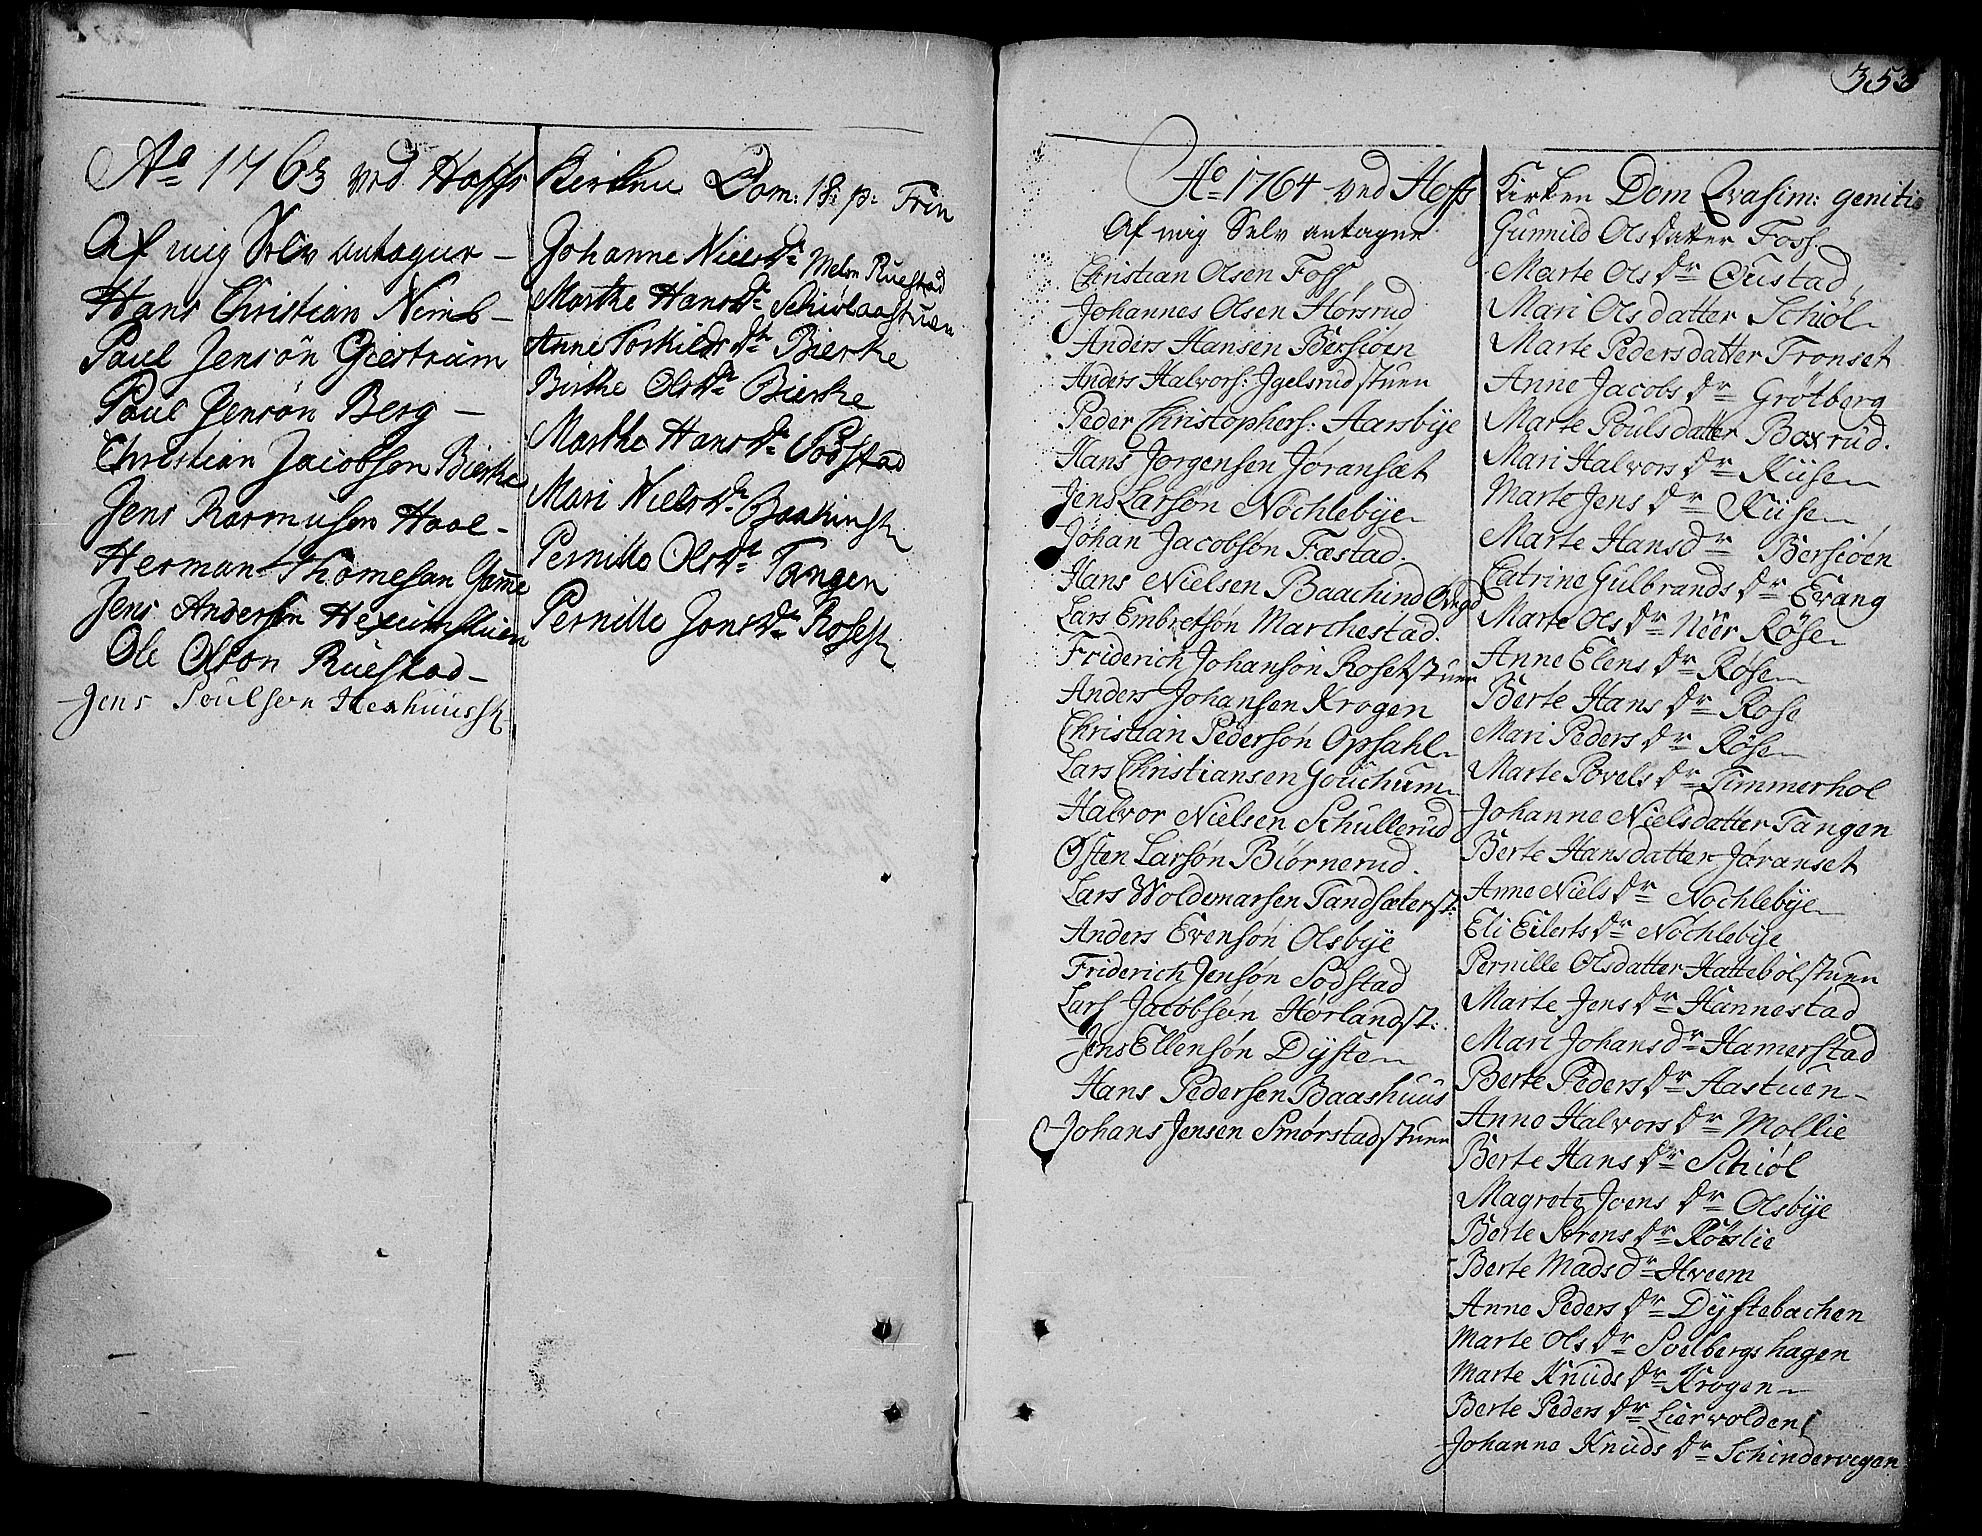 353
Ao 1763 ved Hoffs Kirken Dom: 18: p: Trin
Af mig Selv antagne
Hans Christian Nimb
Paul Jensøn Gieström
Paul Jensøn Berg
Christian Jacobsøn Bierke
Jens Rasmusøn Hool
Herman Thomesøn Game
Jens Andersen
Ole Olson Ruestad
Jens Poulsøn Hexhuusst
Johanne Nielsdr Melm Ruestad
Marthe Hansdr Schiølaastuen
Anne Torkildsdr Bierke
Birthe Olsdr Bierke
Marthe Hansdr Sodstad
Mari Nielsdr Baakinst
Pernille Olsdr Tangen
Pernille Jonsdr Rosest
Ao 1764 ved Hoffs Kirken Dom Qvasim: geniti
Af mig Selv antagne
Christian Olsen Foss
Johannes Olsen Hørsrud
Anders Hansen Bersiøen
Anders Halvors: Jgelsrudstuen
Peder Christophers: Harsbÿe
Hans Jørgensen Jøransæt
Jens Larsøn Nøchlebÿe
Johan Jacobsøn Fæstad.
Hans Nielsen Baachind
Lars Embretsøn Marchestad.
Friderich Johansøn Rosetstuen
Anders Johansen Krogen
Christian Pedersøn Opsahl
Lars Christiansen Gouchum
Halvor Nielsen Schullerud
Østen Larsøn Biørnerud.
Lars Woldemarsen Tandsæterst:
Anders Evensøn Olsbÿe
Friderich Jensøn Sodstad
Lars Jacobsøn Hørlandst:
Jens Ellensøn Dÿsten
Hans Pedersen Baashuus
Johans Jensen Smørstadstuen
Gunnild Olsdatter Foss
Marte Olsdr Øustad
Mari Olsdatter Schiøl
Marte Pedersdatter Tronset
Anne Jacobsdr Grøtberg
Marte Poulsdatter Boxrud.
Mari Halvorsdr Kiise
Marte Jensdr Kiise
Marte Hansdr Bersiøen
Catrine Gulbrandsdr Evang
Marte Olsdr Neer Røse
Anne Elensdr Røse
Berte Hansdr Rose
Mari Pedersdr Røse
Marte Povelsdr Timmerhol
Johanne Nielsdatter Tangen
Berte Hansdatter Jøranset
Anne Nielsdr Nochlebÿe
Eli Eilertsdr Nøchlebÿe
Pernille Olsdatter Hattebølstuen
Marte Jensdr Hannestad
Mari Johansdr Hamerstad
Berte Pedersdr Aastuen
Anne Halvorsdr Mollie
Berte Hansdr Schiøl
Magrete Joensdr Olsbÿe
Berte Sørensdr Røislie
Berte Madsdr Hveem
Anne Pedersdr Dÿstebachen
Marte Olsdr Soelbergshagen
Marte Knudsdr Krogen
Berte Pedersdr Liervolden
Johanne Knudsdr Schindervegen